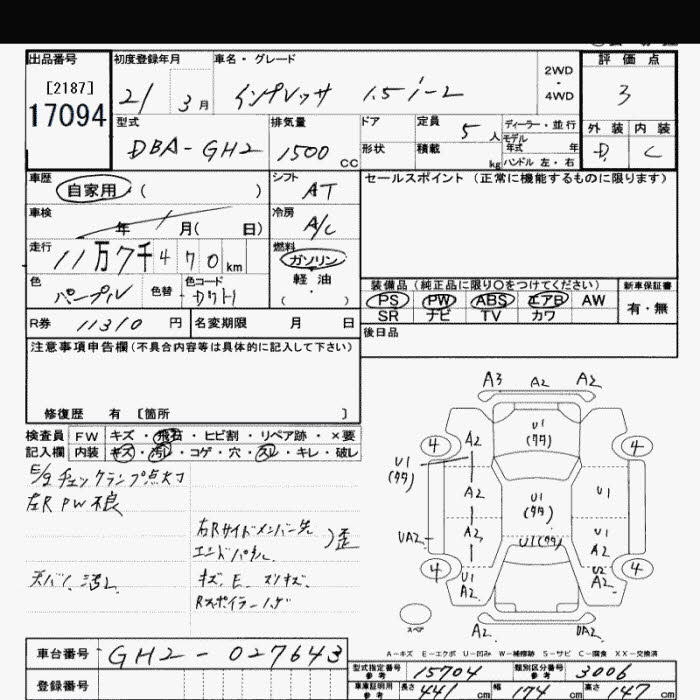 出品番号
[2187]
17094
初度登録年月 車名・グレード
21 3月 インプレッサ 1.5 i-L
2WD
・
4WD
評価点
3
外装 内装
D C
型式 排気量 ドア 定員 5人 ディーラー・並行
DBA-GH2 1500cc 形状 積載 kg
モデル年式 年
ハンドル 左・右
車歴 自家用 ( )
シフト AT
セールスポイント (正常に機能するものに限ります)
車検 年 月( 日)
冷房 A/C
走行 11万7千470km
燃料 ガソリン
軽油
( )
色 パープル 色替 色コード
装備品 (純正品に限り○をつけてください) 新車保証書
PS PW ABS エアB AW 有・無
SR ナビ TV カワ
R券 11310円 名変期限 月 日
後日品
注意事項申告欄(不具合内容等は具体的に記入して下さい)
修復歴 有 [箇所 ]
検査員 FW キズ・飛石・ヒビ割・リペア跡・×要
記入欄 内装 キズ・汚レ・コゲ・穴・スレ・キレ・破レ
E/gチェックランプ点灯
左R PW不良
右Rサイドメンバー先
エンドパネル )歪
天バリ 汚レ
キズ、E、スリキズ、
Rスポイラーハゲ
A3 A2 A2
U1
(タタ)
4 A2 4
U1
(タタ)
A2 U1
(タタ) U1
UA2 A2 U1(タタ) U1
A2
4 U1
A2 U2
A2 4
スペア A2 UA2
A-キズ E-エクボ U-凹ミ W-補修跡 S-サビ C-腐食 XX-交換済
車台番号 GH2-027643
登録番号
型式指定番号 参考 15704 類別区分番号 参考 3006
車庫証明用 参考 長さ 441cm 幅 174cm 高さ 147cm